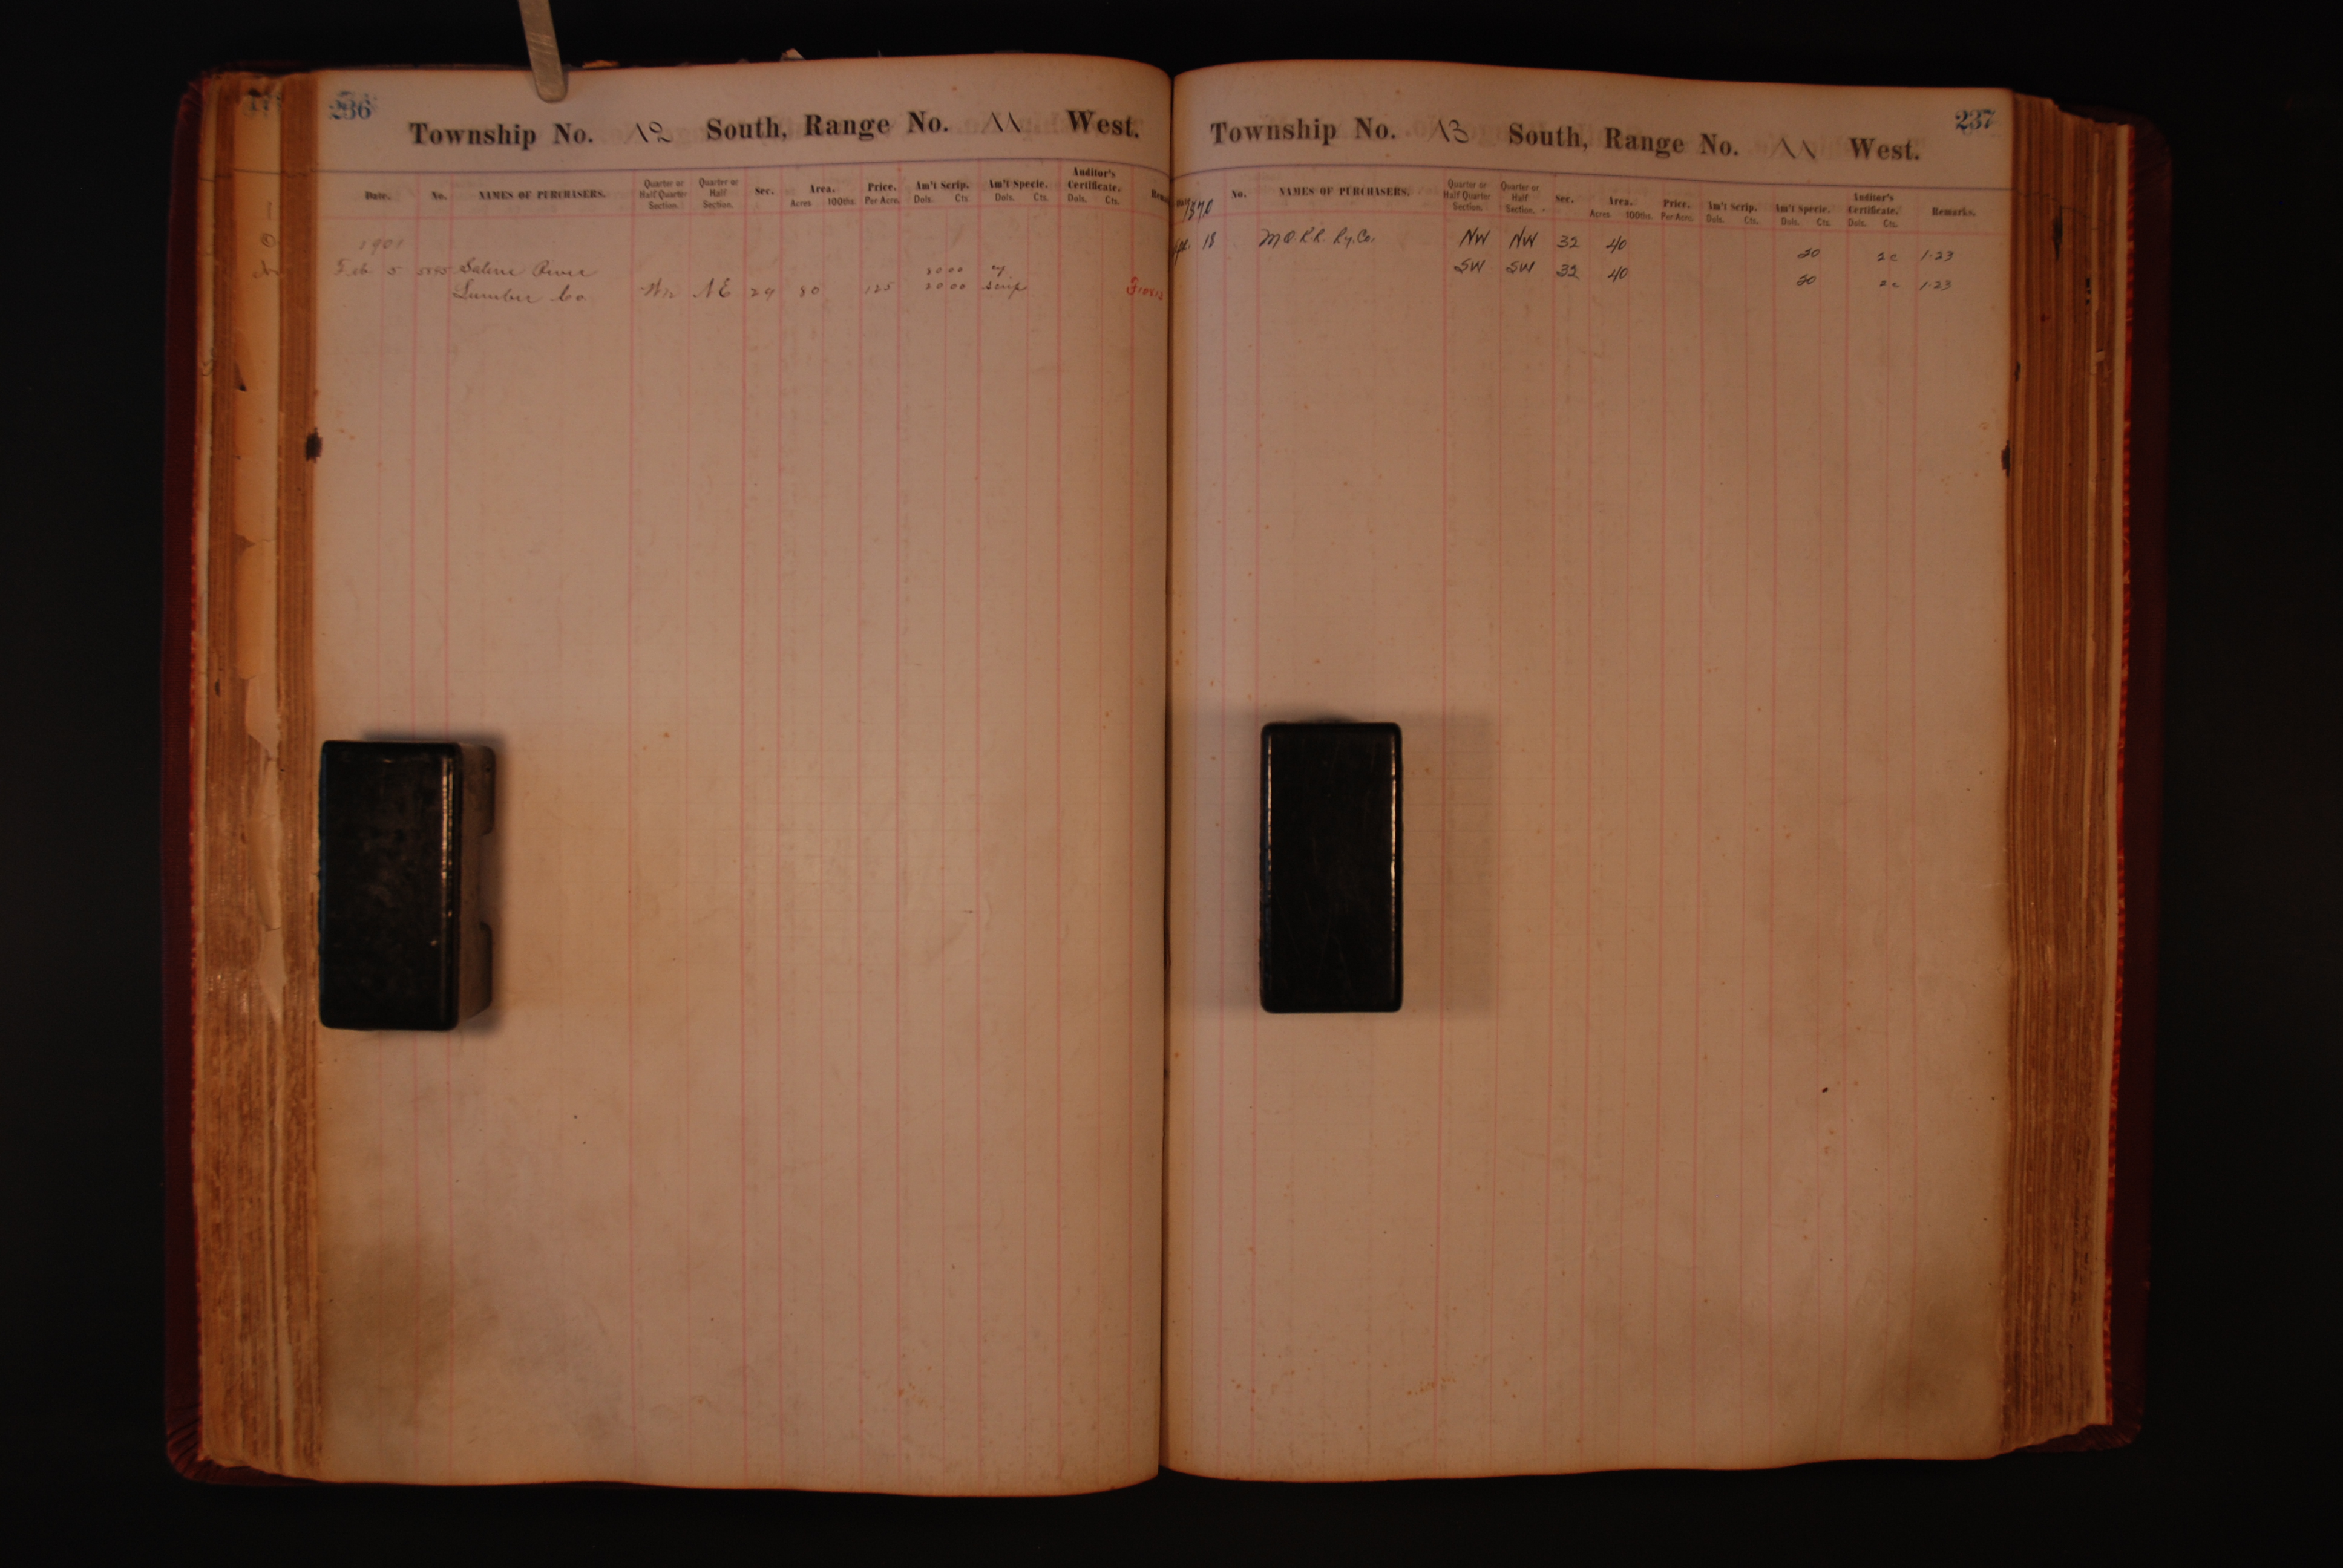 236
Township No. 12 South, Range No. 11 West.
Date. No. NAMES OF PURCHASERS. Quarter or Half Quarter Section. Quarter or Half Section. Sec. Area. Acres 100ths Price. Per Acre. Am't Scrip. Dols. Cts. Am't Specie. Dols. Cts. Auditor's Certificate. Dols. Cts.
1901
Feb 5 Saline River 20 00
Lumber Co. W½ NE 29 80 125 20 00 Scrip
237
Township No. 13 South, Range No. 11 West.
No. NAMES OF PURCHASERS. Quarter or Half Quarter Section. Quarter or Half Section. Sec. Area. Acres 100ths Price. Per Acre. Am't Scrip. Dols. Cts. Am't Specie. Dols. Cts. Auditor's Certificate. Dols. Cts. Remarks.
1870
18 M O & R. R. Ry. Co. NW NW 32 40 20 1-23
SW SW 32 40 20 1-23